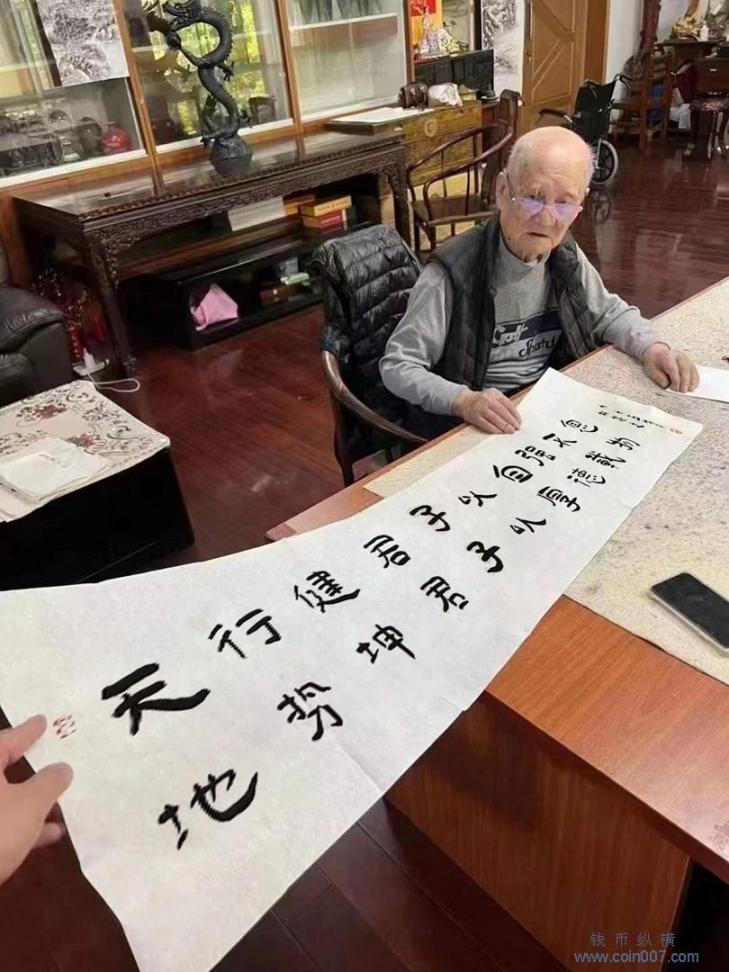 天行健君子以自强不息
地势坤君子以厚德載物
钱币纵横
www.coin007.com